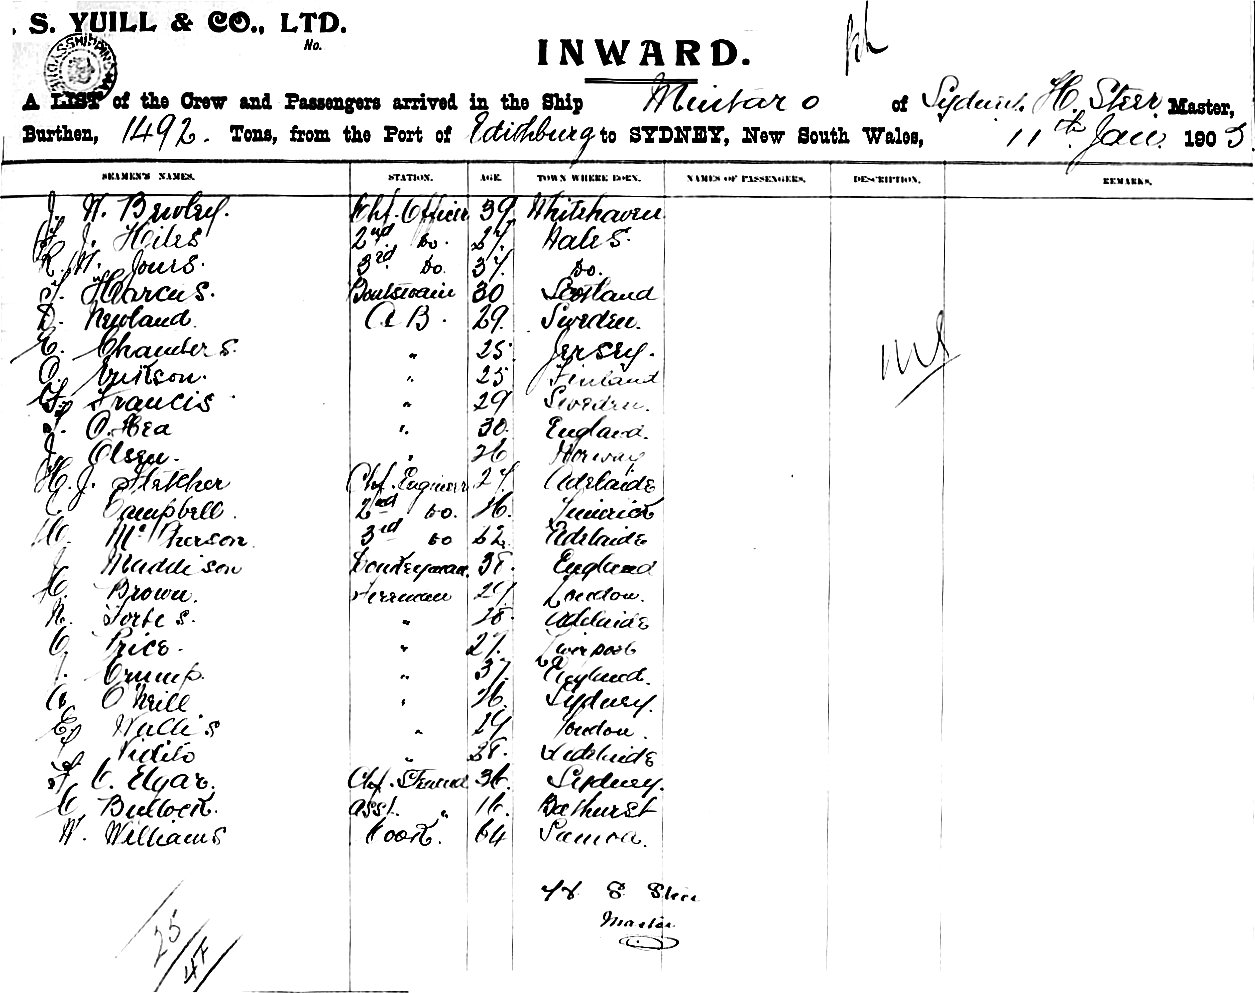 S. YUILL & CO., LTD.
No.
INWARD.
A LIST of the Crew and Passengers arrived in the Ship Mintaro of Sydney. H. Steer Master,
Burthen, 1492. Tons, from the Port of Edithburg to SYDNEY, New South Wales, 11th Jan. 1903
SEAMEN'S NAMES. STATION. AGE. TOWN WHERE BORN. NAMES OF PASSENGERS. DESCRIPTION. REMARKS.
J. W. Chf. Officer 39 Whitehaven
J. Hiles 2nd Do. 27 Wales.
3rd Do. 37 Do.
Marcus. Boatswain 30 Scotland
D. Newland. A B. 29. Sweden.
Chambers. " 25 Jersey.
O. Erikson. " 25 Finland
Francis " 29 Sweden.
O.Hea " 30. England.
J. Olsen. " 26 Norway
H. J. Fletcher Chf. Engineer 27 Adelaide
Campbell. 2nd Do. 26. Limerick
McPherson. 3rd Do 22. Adelaide
J. Maddison Donkeyman. 38. England
Brown. Fireman 29 London.
Forbes. " 28. Adelaide
C. Price. " 27. Liverpool
J. Crump. " 37. England.
O'Neill " 26. Sydney.
Wallis " 29 London.
" 28. Adelaide
C. Elgar. Chf. Steward 36. Sydney.
C. Bullock. Asst. " 16. Bathurst
W. Williams Cook. 64 Samoa.
Steer
Master
25/47